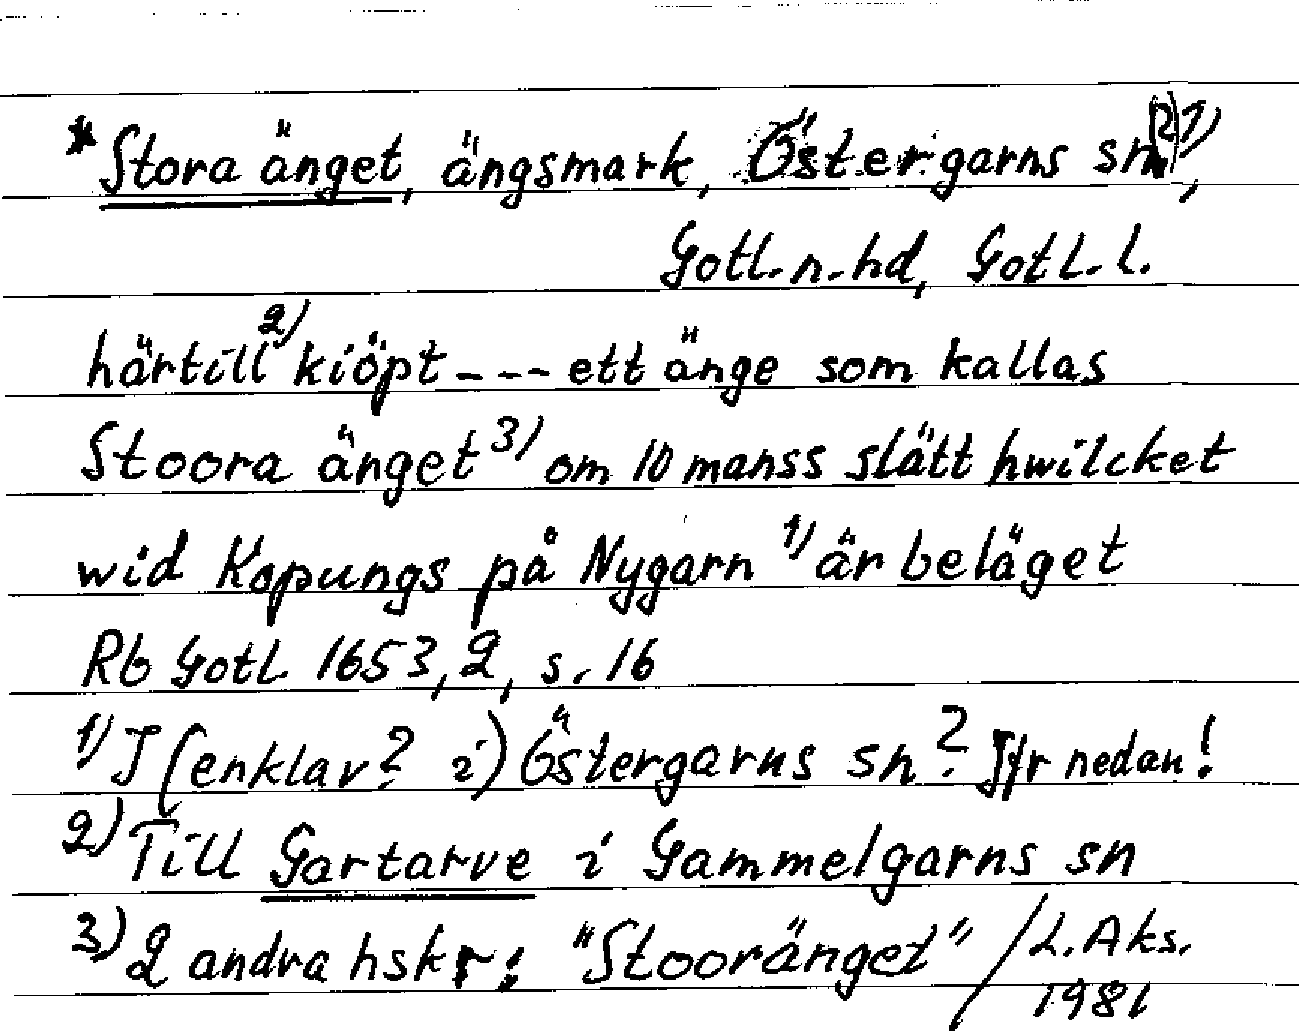 * Stora änget, ängsmark, Östergarns sn(?)1),
Gotl. n. hd, Gotl. l.
härtill2) kiöpt - - - ett änge som kallas
Stoora änget3) om 10 manss slätt hwilcket
wid Kopungs på Nygarn 1) är beläget
Rb Gotl 1653, 2, s. 16
1) I (enklav? i) Östergarns sn? Jfr nedan!
2) Till Gartarve i Gammelgarns sn
3) 2 andra hskr: "Stooränget" / L. Aks.
1981